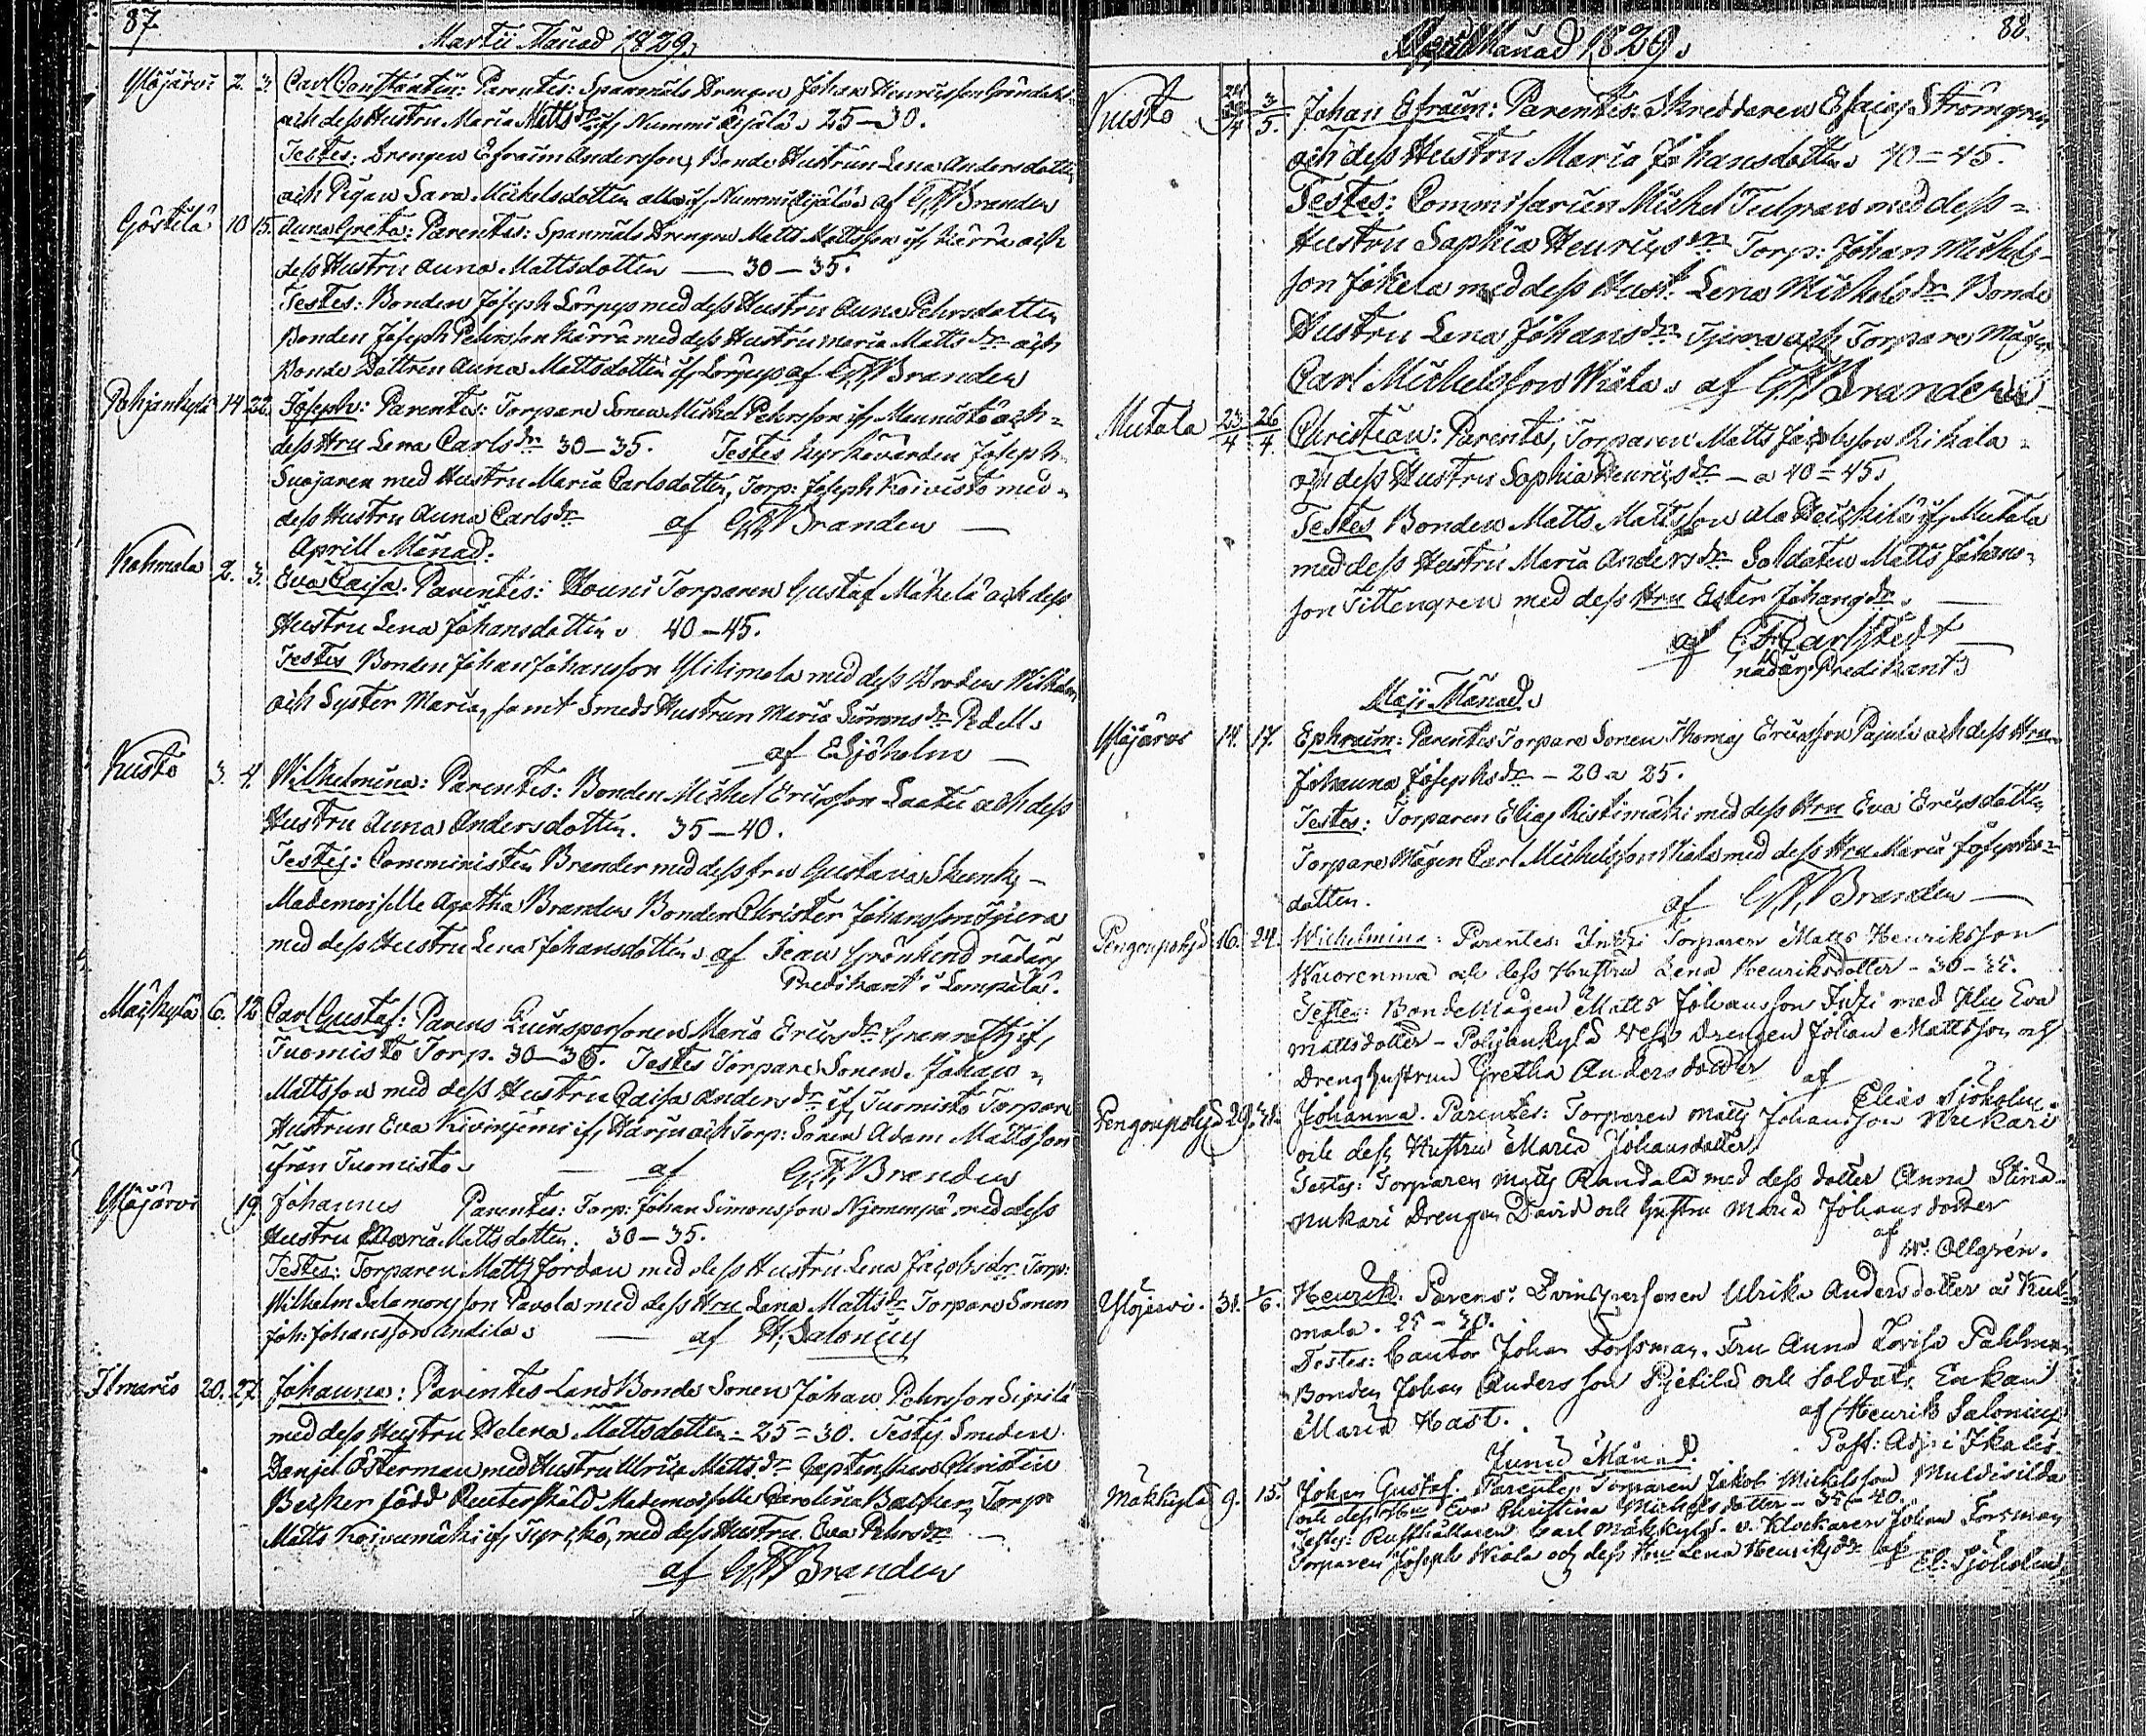 87
Martii Månad 1829.
Ylöjärvi 2. 3. Carl Constantin: Parentes: Spanmåls Drengen Johan Henricsson
och dess Hustru Maria Matts dr ifr Nummi Äijälä 25–30.
Testes: Drengen Efraim Andersson, Bonde Hustrun Lena Andersdotter
och Pigan Sara Michelsdotter alla ifr Nummi Äijälä af G.A. Brander
10 15. Anna Greta: Parentes: Spanmåls Drengen Matts Mattsson ifr Kärrä och
dess Hustru Anna Mattsdotter — 30–35.
Testes: Bonden Joseph Lörpys med dess Hustru Anna Pehrsdotter
Bonden Joseph Pehrsson Kärrä med dess Hustru Maria Matts dr och
Bonde Dottren Anna Mattsdotter ifr Lörpys af G.A. Brander
Pohjankylä 14 22. Joseph: Parentes: Torpare Sonen Michel Pehrsson ifr Mannistö och
dess Hru Lena Carls dr 30–35. Testes Kyrkovärden Joseph
Suojanen med Hustru Maria Carlsdotter, Torp: Joseph Koivisto med
dess Hustru Anna Carls dr af G.A. Brander
Aprill Månad.
Kehmala 2. 3. Eva Caisa. Parentes: Torparen Gustaf Mäkelä och dess
Hustru Lena Johansdotter 40–45.
Testes Bonden Johan Johansson med dess Broder Wilhelm
och Syster Maria, samt Smeds Hustrun Maria Simons dr
af E Sjöholm
Runsto 3. 4. Wilhelmina: Parentes: Bonden Michel Ericsson Laatu och dess
Hustru Anna Andersdotter. 35–40.
Testes: Comministern Brander med dess fru Gustava
Mademoiselle Agatha Brander Bonden Christer Johansson Tjiera
med dess Hustru Lena Johansdotter af Jean Grönlund nådårs
Predikant i Lempälä.
6. 12 Carl Gustaf: Parens Quinspersonen Maria Erics dr ifr
Tuomisto Torp. 30–35. Testes Torpare Sonen Johan
Mattsson med dess Hustru Caisa Anders dr if Tuomisto Torpare
Hustrun Eva Kivinjemi ifr Harju och Torp: Sonen Adam Mattsson
ifrån Tuomisto af G.A. Brander
Ylöjärvi 19. Johannes Parentes: Torp: Johan Simonsson Njemenpä med dess
Hustru Maria Mattsdotter. 30–35.
Testes: Torparen Matts Jordan med dess Hustru Lena Jacobs dr Torp:
Wilhelm Salomonsson Pavola med dess Hru Lena Matts dr Torpare Sonen
Joh: Johansson Andila af H. Salonius
Ilmaris 20. 27. Johanna: Parentes Land Bonde Sonen Johan Pehrsson Sipilä
med dess Hustru Helena Mattsdotter 25=30. Testes Smeden
Danjel Österman med Hustru Ulrica Matts dr Christin
Becker född Reuterskiöld Mademoiselle Carolina Becker, Torp:
Matts Koivumäki ifr med dess Hustru Eva Pehrs dr
af G.A. Brander
88.
April Månad 1829.
Runsto 3/5. Johan Efraim: Parentes: Skreddaren Esaias Strömgren
och dess Hustru Maria Johansdotter 40=45.
Testes: Commissarien Michel Tulpan med dess
Hustru Saphia Henrics dr Torp: Johan Michels-
son Jokela med dess Hust. Lena Michels dr Bonde
Hustru Lena Johans dr Tjiera och Torpare Mågen
Carl Michelsson Wiola af G.A. Brander
Mutala 23/4 26/4. Christian: Parentes, Torparen Matts Jacobsson Rikala
och dess Hustru Sophia Henrics dr – a 40=45.
Testes Bonden Matts Mattsson Ala Heiskilä ifr Mutala
med dess Hustru Maria Anders dr Soldaten Matts Johans-
son Tittengren med dess Hru Ester Johans dr.
af C F Carlstedt
nådårs Predikant
Maji Månad.
Ylöjärvi 14. 17. Ephraim: Parentes Torpare Sonen Thomas Ericsson Pajula och dess Hru
Johanna Josephs dr – 20 a 25.
Testes: Torparen Elias Ristimäki med dess Hru Eva Ericsdotter
Torpare Mågen Carl Michelsson Wiola med dess Hru Maria Josephs-
dotter. af G.A. Brander
Pengonpohja 16. 24. Wilhelmina: Parentes: Inki Torparen Matts Henriksson
Wuorenmä och dess Hustru Lena Henriksdotter – 30–35.
Testes: Bonde Mågen Matts Johansson Inki med Hu Eva
Mattsdotter – Pohjankylä Drengen Johan Mattsson och
Dreng Hustrun Gretha Andersdotter af
Elias Sjöholm.
Pengonpohja 29. 31. Johanna. Parentes: Torparen Matts Johansson Mukari
och dess Hustru Maria Johansdotter
Testes: Torparen Matts Randala med dess dotter Anna Stina
Mukari Drengen David och Hustru Maria Johansdotter
af W. Ollgrén.
Ylöjerwi. 31. 1/6. Henrik. Parens: Qvinspersonen Ulrika Andersdotter å Keh-
mala. 25–30.
Testes: Cantor Johan Forssman, Fru Anna Lovisa Pahlman
Bonden Johan Andersson Pjetilä och Soldats Enkan
Maria Hast. af Henrik Salonius
Past: Adj: i Ikalis.
Junii Månad.
Mäkkylä 9. 15. Johan Gustaf. Parentes Torparen Jakob Mickelsson
och dess Hstru Eva Christina Michelsdotter – 35–40.
Testes: Rusthållaren Carl Mäkkylä. Klockaren Johan Forsman
Torparen Joseph Wiola och dess Hru Lena Henriks dr af
El: Sjöholm